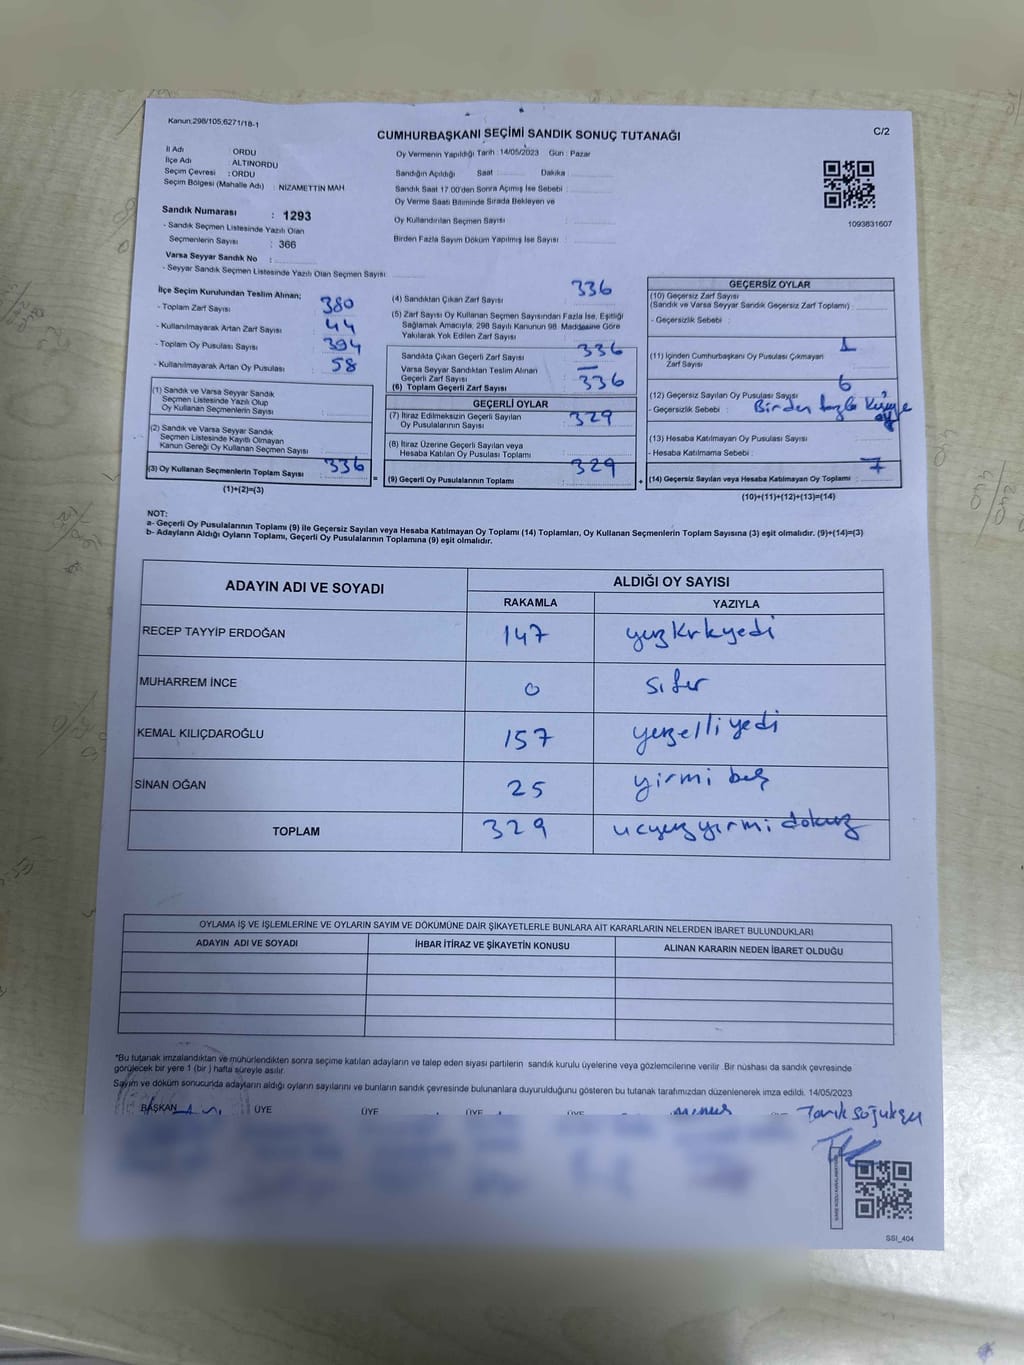 Kanun:298/105;6271/18-1
CUMHURBAŞKANI SEÇİMİ SANDIK SONUÇ TUTANAĞI
C/2
İl Adı : ORDU
İlçe Adı : ALTINORDU
Seçim Çevresi : ORDU
Seçim Bölgesi (Mahalle Adı) : NİZAMETTIN MAH
Sandık Numarası : 1293
- Sandık Seçmen Listesinde Yazılı Olan
Seçmenlerin Sayısı : 366
Varsa Seyyar Sandık No :
- Seyyar Sandık Seçmen Listesinde Yazılı Olan Seçmen Sayısı
Oy Vermenin Yapıldığı Tarih : 14/05/2023 Gün : Pazar
Sandığın Açıldığı Saat : Dakika :
Sandık Saat 17.00'den Sonra Açımış İse Sebebi :
Oy Verme Saati Bitiminde Sırada Bekleyen ve
Oy Kullandırılan Seçmen Sayısı :
Birden Fazla Sayım Döküm Yapılmış İse Sayısı :
1093831607
İlçe Seçim Kurulundan Teslim Alınan;
- Toplam Zarf Sayısı : 380
- Kullanılmayarak Artan Zarf Sayısı : 44
- Toplam Oy Pusulası Sayısı : 394
- Kullanılmayarak Artan Oy Pusulası : 58
(1) Sandık ve Varsa Seyyar Sandık
Seçmen Listesinde Yazılı Olup
Oy Kullanan Seçmenlerin Sayısı :
(2) Sandık ve Varsa Seyyar Sandık
Seçmen Listesinde Kayıtlı Olmayan
Kanun Gereği Oy Kullanan Seçmen Sayısı :
(3) Oy Kullanan Seçmenlerin Toplam Sayısı : 336
(1)+(2)=(3)
(4) Sandıktan Çıkan Zarf Sayısı : 336
(5) Zarf Sayısı Oy Kullanan Seçmen Sayısından Fazla İse, Eşitliği
Sağlamak Amacıyla, 298 Sayılı Kanunun 98. Maddesine Göre
Yakılarak Yok Edilen Zarf Sayısı :
Sandıkta Çıkan Geçerli Zarf Sayısı : 336
Varsa Seyyar Sandıktan Teslim Alınan
Geçerli Zarf Sayısı : —
(6) Toplam Geçerli Zarf Sayısı : 336
GEÇERLİ OYLAR
(7) İtiraz Edilmeksizin Geçerli Sayılan
Oy Pusulalarının Sayısı : 329
(8) İtiraz Üzerine Geçerli Sayılan veya
Hesaba Katılan Oy Pusulası Toplamı :
= (9) Geçerli Oy Pusulalarının Toplamı : 329
GEÇERSİZ OYLAR
(10) Geçersiz Zarf Sayısı
(Sandık ve Varsa Seyyar Sandık Geçersiz Zarf Toplamı) :
- Geçersizlik Sebebi :
(11) İçinden Cumhurbaşkanı Oy Pusulası Çıkmayan
Zarf Sayısı : 1
(12) Geçersiz Sayılan Oy Pusulası Sayısı : 6
- Geçersizlik Sebebi : Birden fazla kişiye
oy
(13) Hesaba Katılmayan Oy Pusulası Sayısı :
- Hesaba Katılmama Sebebi :
+ (14) Geçersiz Sayılan veya Hesaba Katılmayan Oy Toplamı : 7
(10)+(11)+(12)+(13)=(14)
NOT:
a- Geçerli Oy Pusulalarının Toplamı (9) ile Geçersiz Sayılan veya Hesaba Katılmayan Oy Toplamı (14) Toplamları, Oy Kullanan Seçmenlerin Toplam Sayısına (3) eşit olmalıdır. (9)+(14)=(3)
b- Adayların Aldığı Oyların Toplamı, Geçerli Oy Pusulalarının Toplamına (9) eşit olmalıdır.
ADAYIN ADI VE SOYADI
ALDIĞI OY SAYISI
RAKAMLA YAZIYLA
RECEP TAYYİP ERDOĞAN 147 yüzkırkyedi
MUHARREM İNCE 0 sıfır
KEMAL KILIÇDAROĞLU 157 yüzelliyedi
SİNAN OĞAN 25 yirmi beş
TOPLAM 329 üçyüzyirmi dokuz
OYLAMA İŞ VE İŞLEMLERİNE VE OYLARIN SAYIM VE DÖKÜMÜNE DAİR ŞİKAYETLERLE BUNLARA AİT KARARLARIN NELERDEN İBARET BULUNDUKLARI
ADAYIN ADI VE SOYADI İHBAR İTİRAZ VE ŞİKAYETİN KONUSU ALINAN KARARIN NEDEN İBARET OLDUĞU
*Bu tutanak imzalandıktan ve mühürlendikten sonra seçime katılan adayların ve talep eden siyasi partilerin sandık kurulu üyelerine veya gözlemcilerine verilir. Bir nüshası da sandık çevresinde
görülecek bir yere 1 (bir) hafta süreyle asılır.
Sayım ve döküm sonucunda adayların aldığı oyların sayılarını ve bunların sandık çevresinde bulunanlara duyurulduğunu gösteren bu tutanak tarafımızdan düzenlenerek imza edildi. 14/05/2023
BAŞKAN ÜYE ÜYE ÜYE ÜYE
Tarık Soğuksu
SSI_404